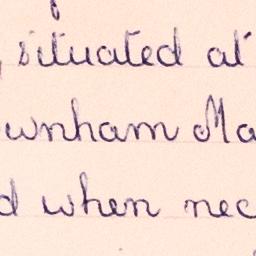 , situated at
wnham Ma
d when nec